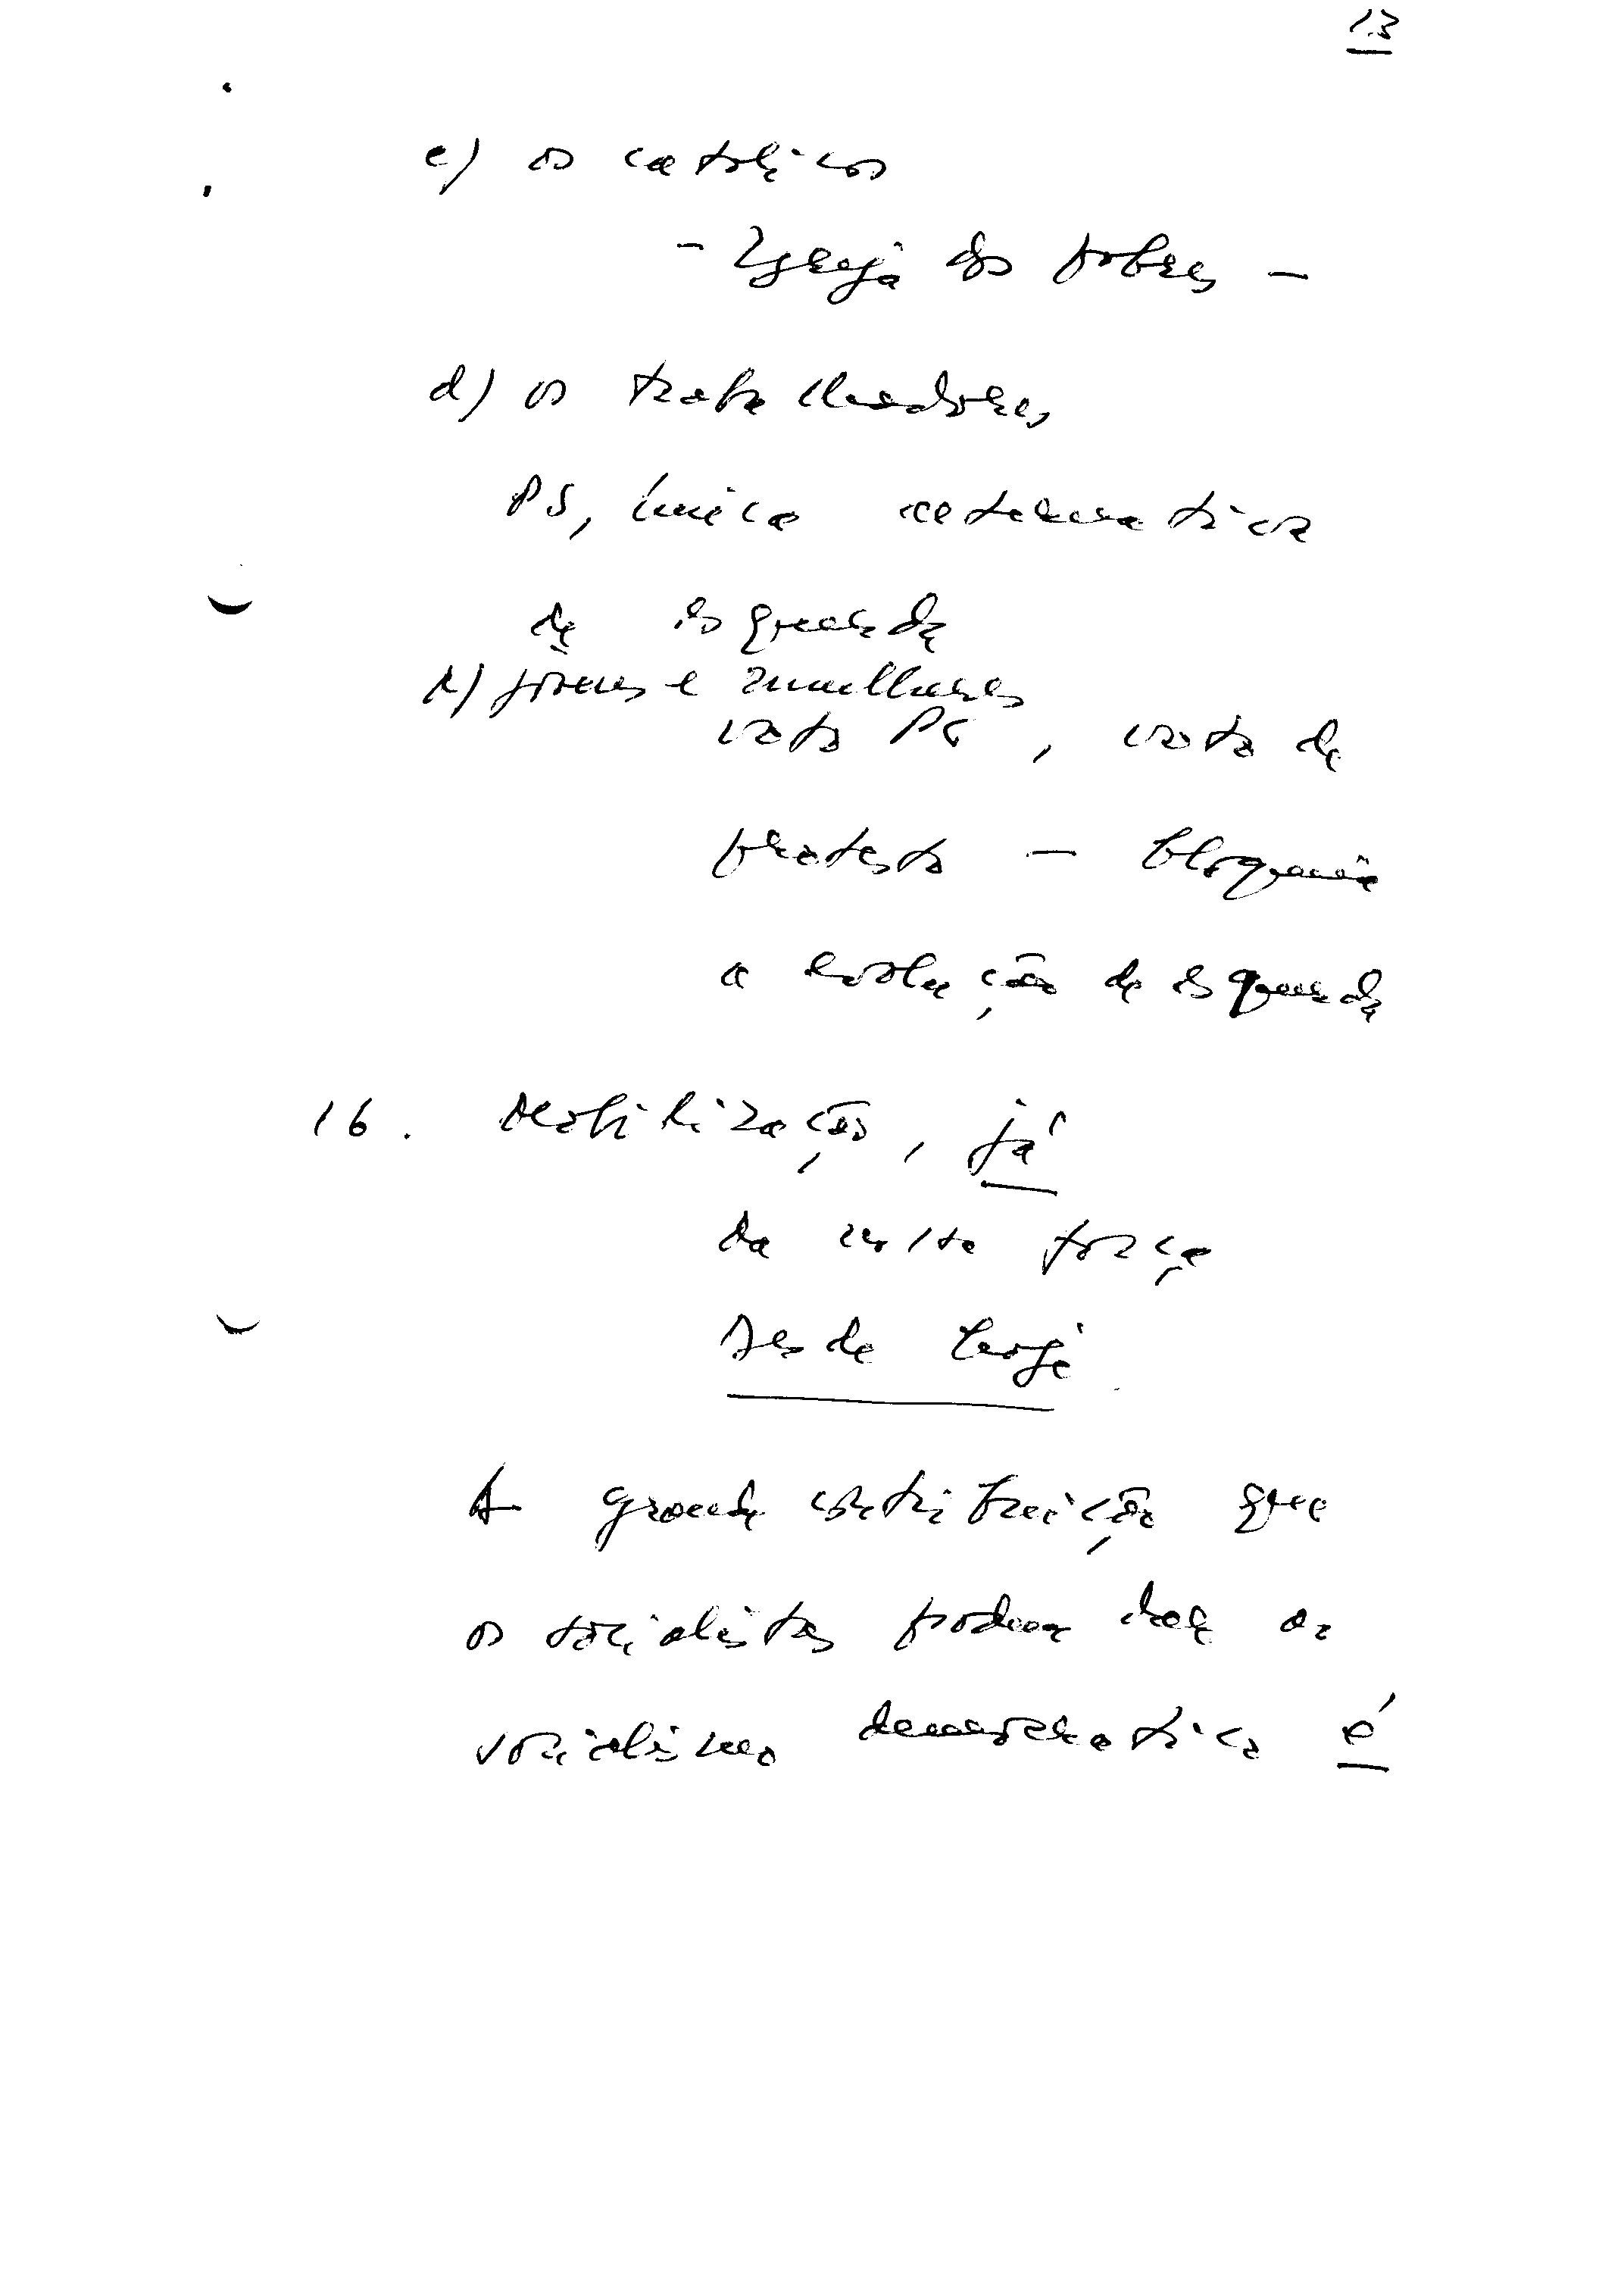 13
c) os católicos
- Igreja dos pobres -
d) os trabalhadores
PS, única alternativa
de esquerda
e) jovens e mulheres
voto PC, voto de
protesto - bloqueia
a evolução de esquerda
16. Mobilização, já
da nossa força
desde hoje
A grande contribuição que
os socialistas podem dar ao
socialismo democrático é